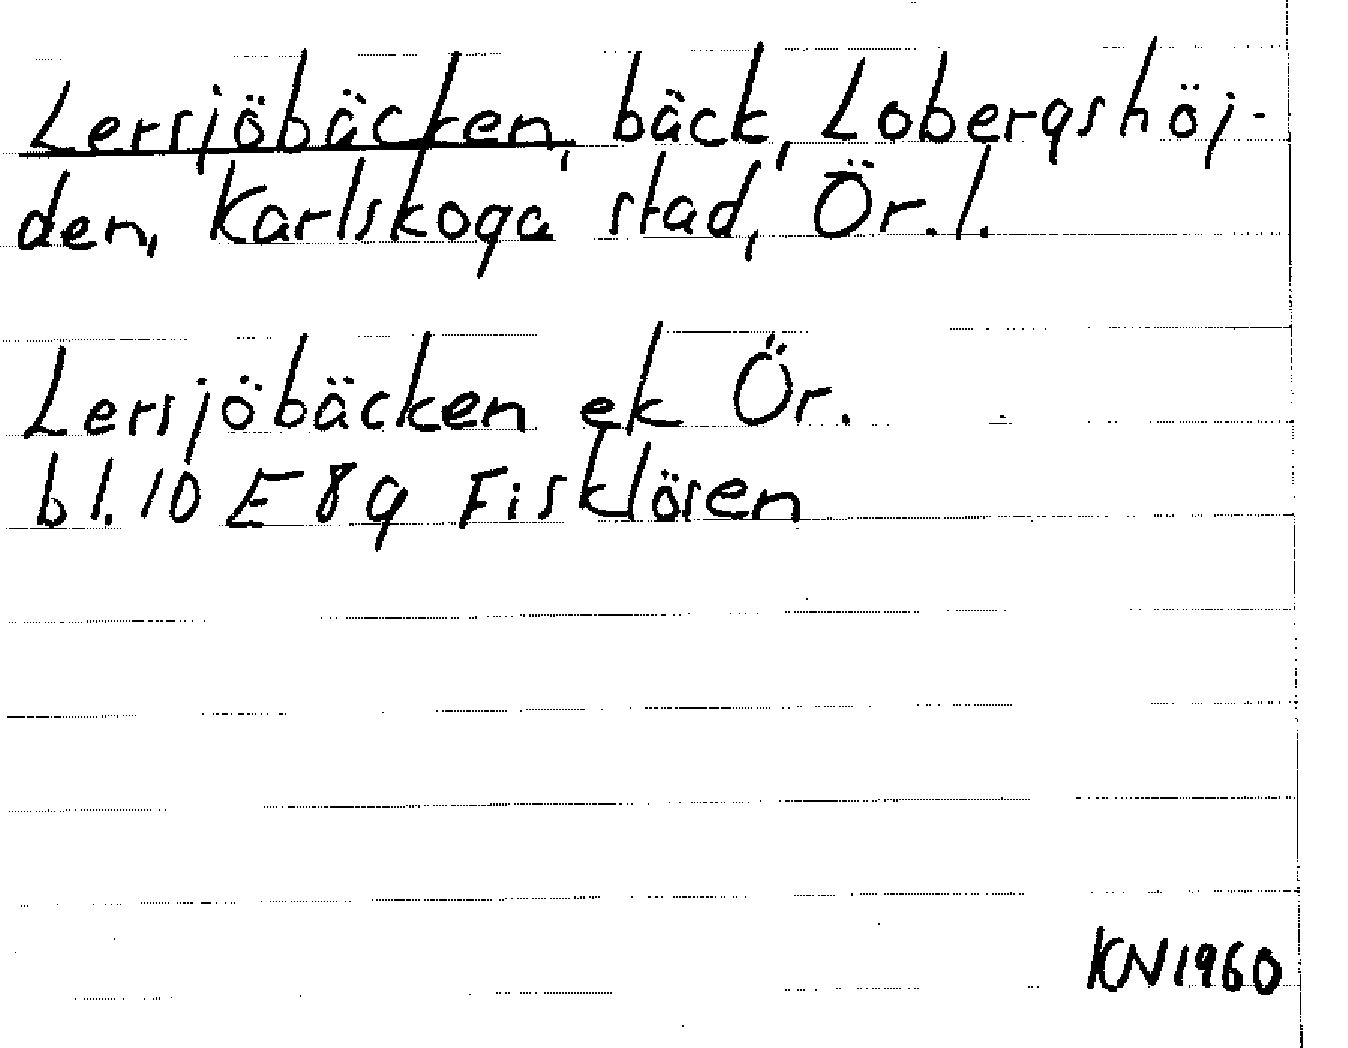 Lersjöbäcken, bäck, Lobergshöj-
den, Karlskoga stad, Ör. l.
Lersjöbäcken ek Ör.
bl. 10 E 8g Fisklösen
KN1960